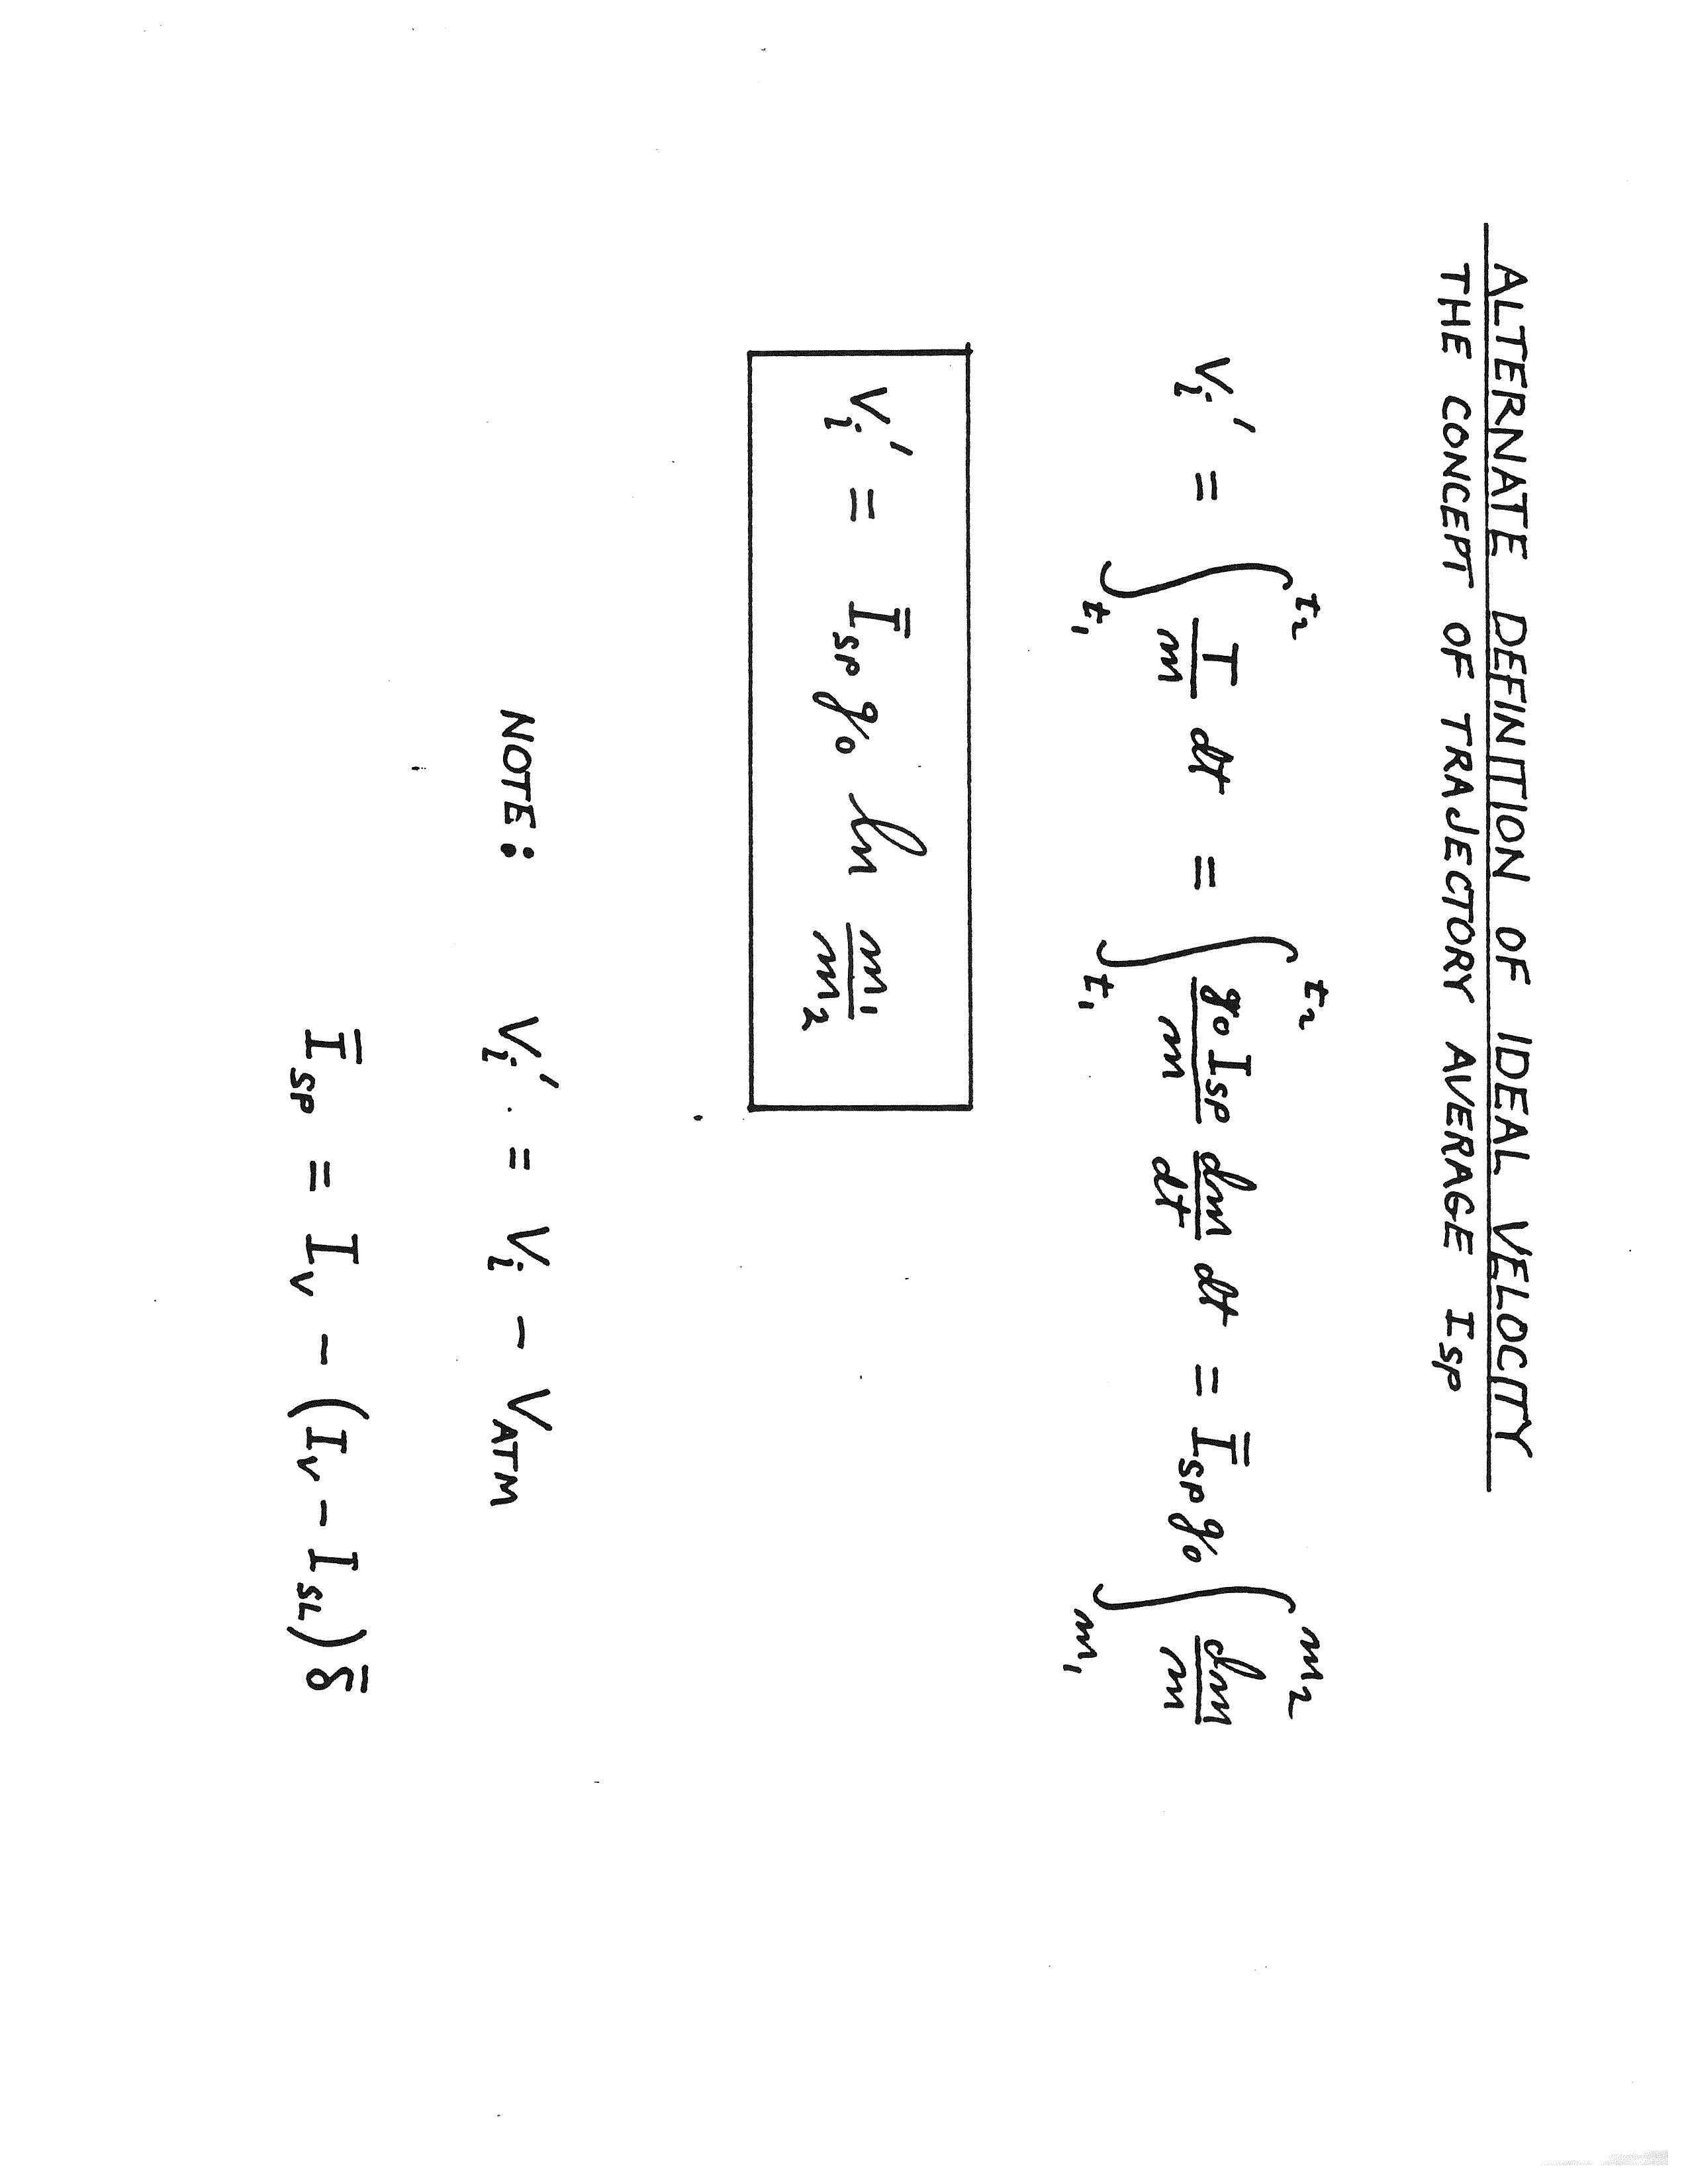 ALTERNATE DEFINITION OF IDEAL VELOCITY
THE CONCEPT OF TRAJECTORY AVERAGE I_SP
V_i' = ∫_{t_1}^{t_2} T/m dt = ∫_{t_1}^{t_2} (g_0 I_SP)/m dm/dt dt = Ī_SP g_0 ∫_{m_1}^{m_2} dm/m
V_i' = Ī_SP g_0 ln m_1/m_2
NOTE: V_i' = V_i - V_ATM
Ī_SP = I_V - (I_V - I_SL) δ̄